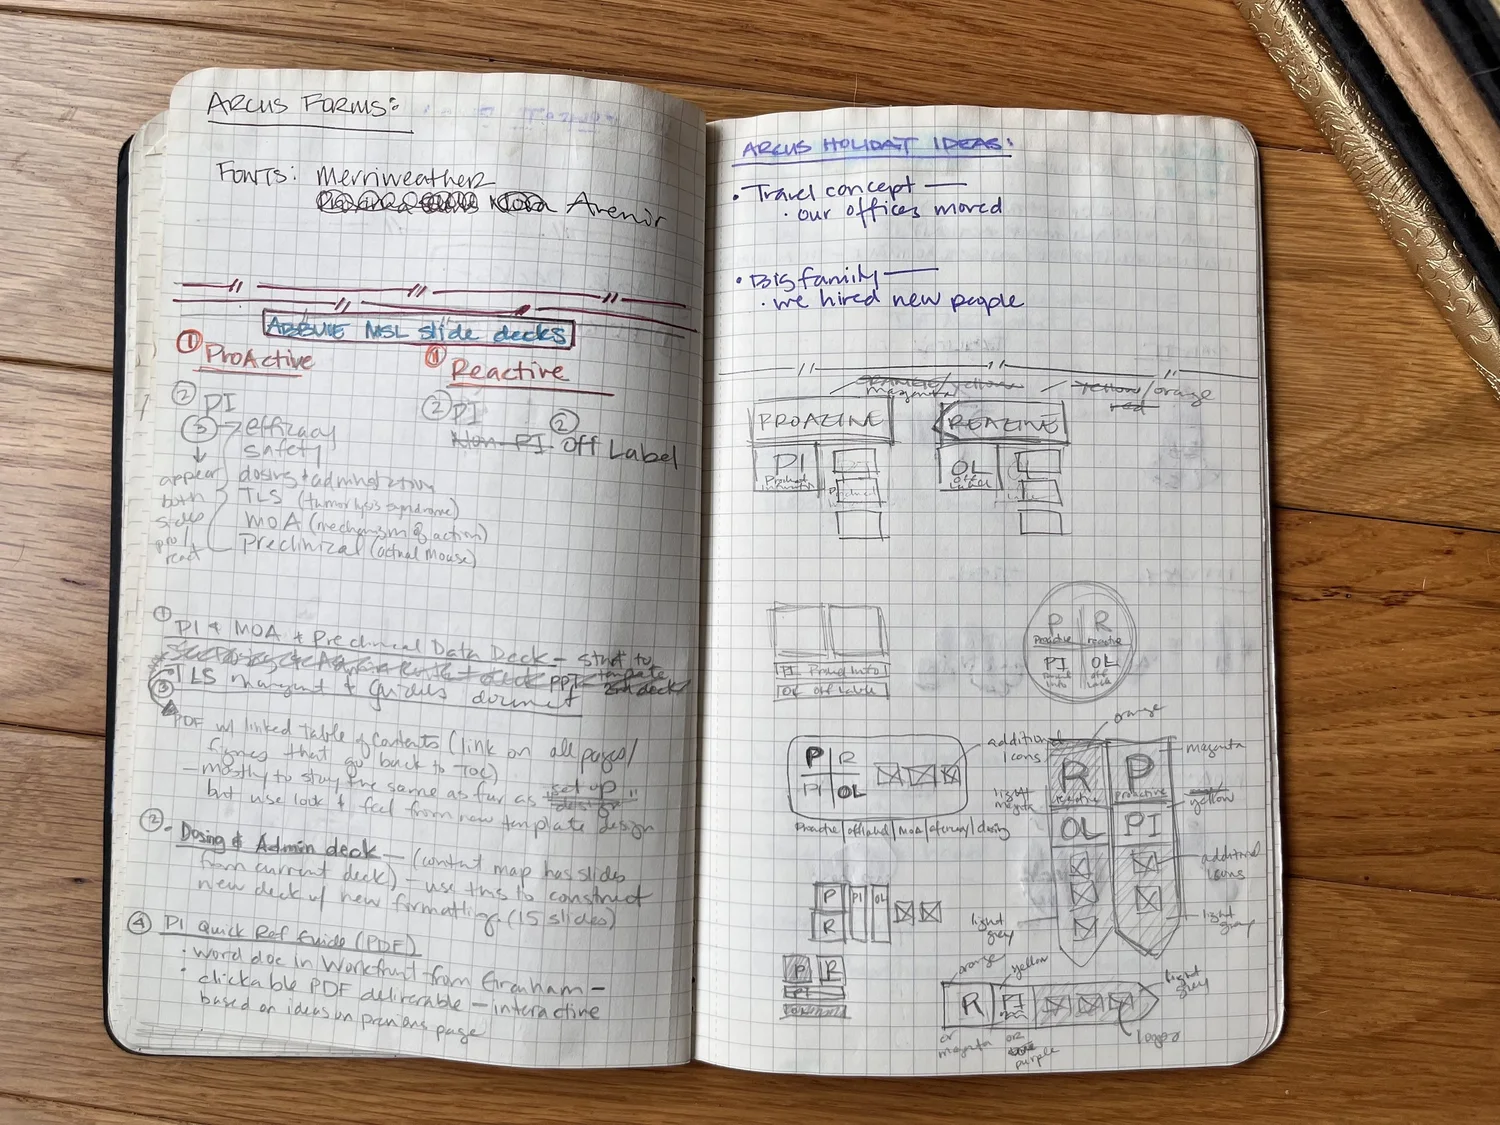 ARCUS FORMS:
FONTS: Merriweather
Avenir
ABBVIE MSL slide decks
① ProActive
① Reactive
② PI
③ → efficacy
safety
appear
both
sides
pro/
react
dosing + administration
TLS (tumor lysis syndrome)
MOA (mechanism of action)
Preclinical (actual mouse)
② PI
②
Non-PI Off Label
① PI & MOA & Preclinical Data Deck –
TLS
③
PDF w/ linked table of contents (link on all pages/
figures that go back to TOC)
– mostly to stay the same as far as set up
but use look & feel from new template design
② - Dosing & Admin deck – (content map has slides
from current deck) – use this to construct
new deck w/ new formatting (15 slides)
④ PI Quick Ref Guide (PDF)
· word doc in Workfront from Graham –
· clickable PDF deliverable – interactive
based on ideas on previous page
ARCUS HOLIDAY IDEAS:
• Travel concept —
· our offices moved
• Big family —
· we hired new people
magenta
yellow/orange
red
PI
OL
P R
Proactive reactive
PI OL
PI Product Info
OL Off Lable
P R
PI OL
additional
icons
orange
magenta
yellow
R P
reactive proactive
OL PI
additional
icons
light
grey
light
gray
P PI OL
R
P R
PI
orange
yellow
light
grey
R PI
or
magenta
or
purple